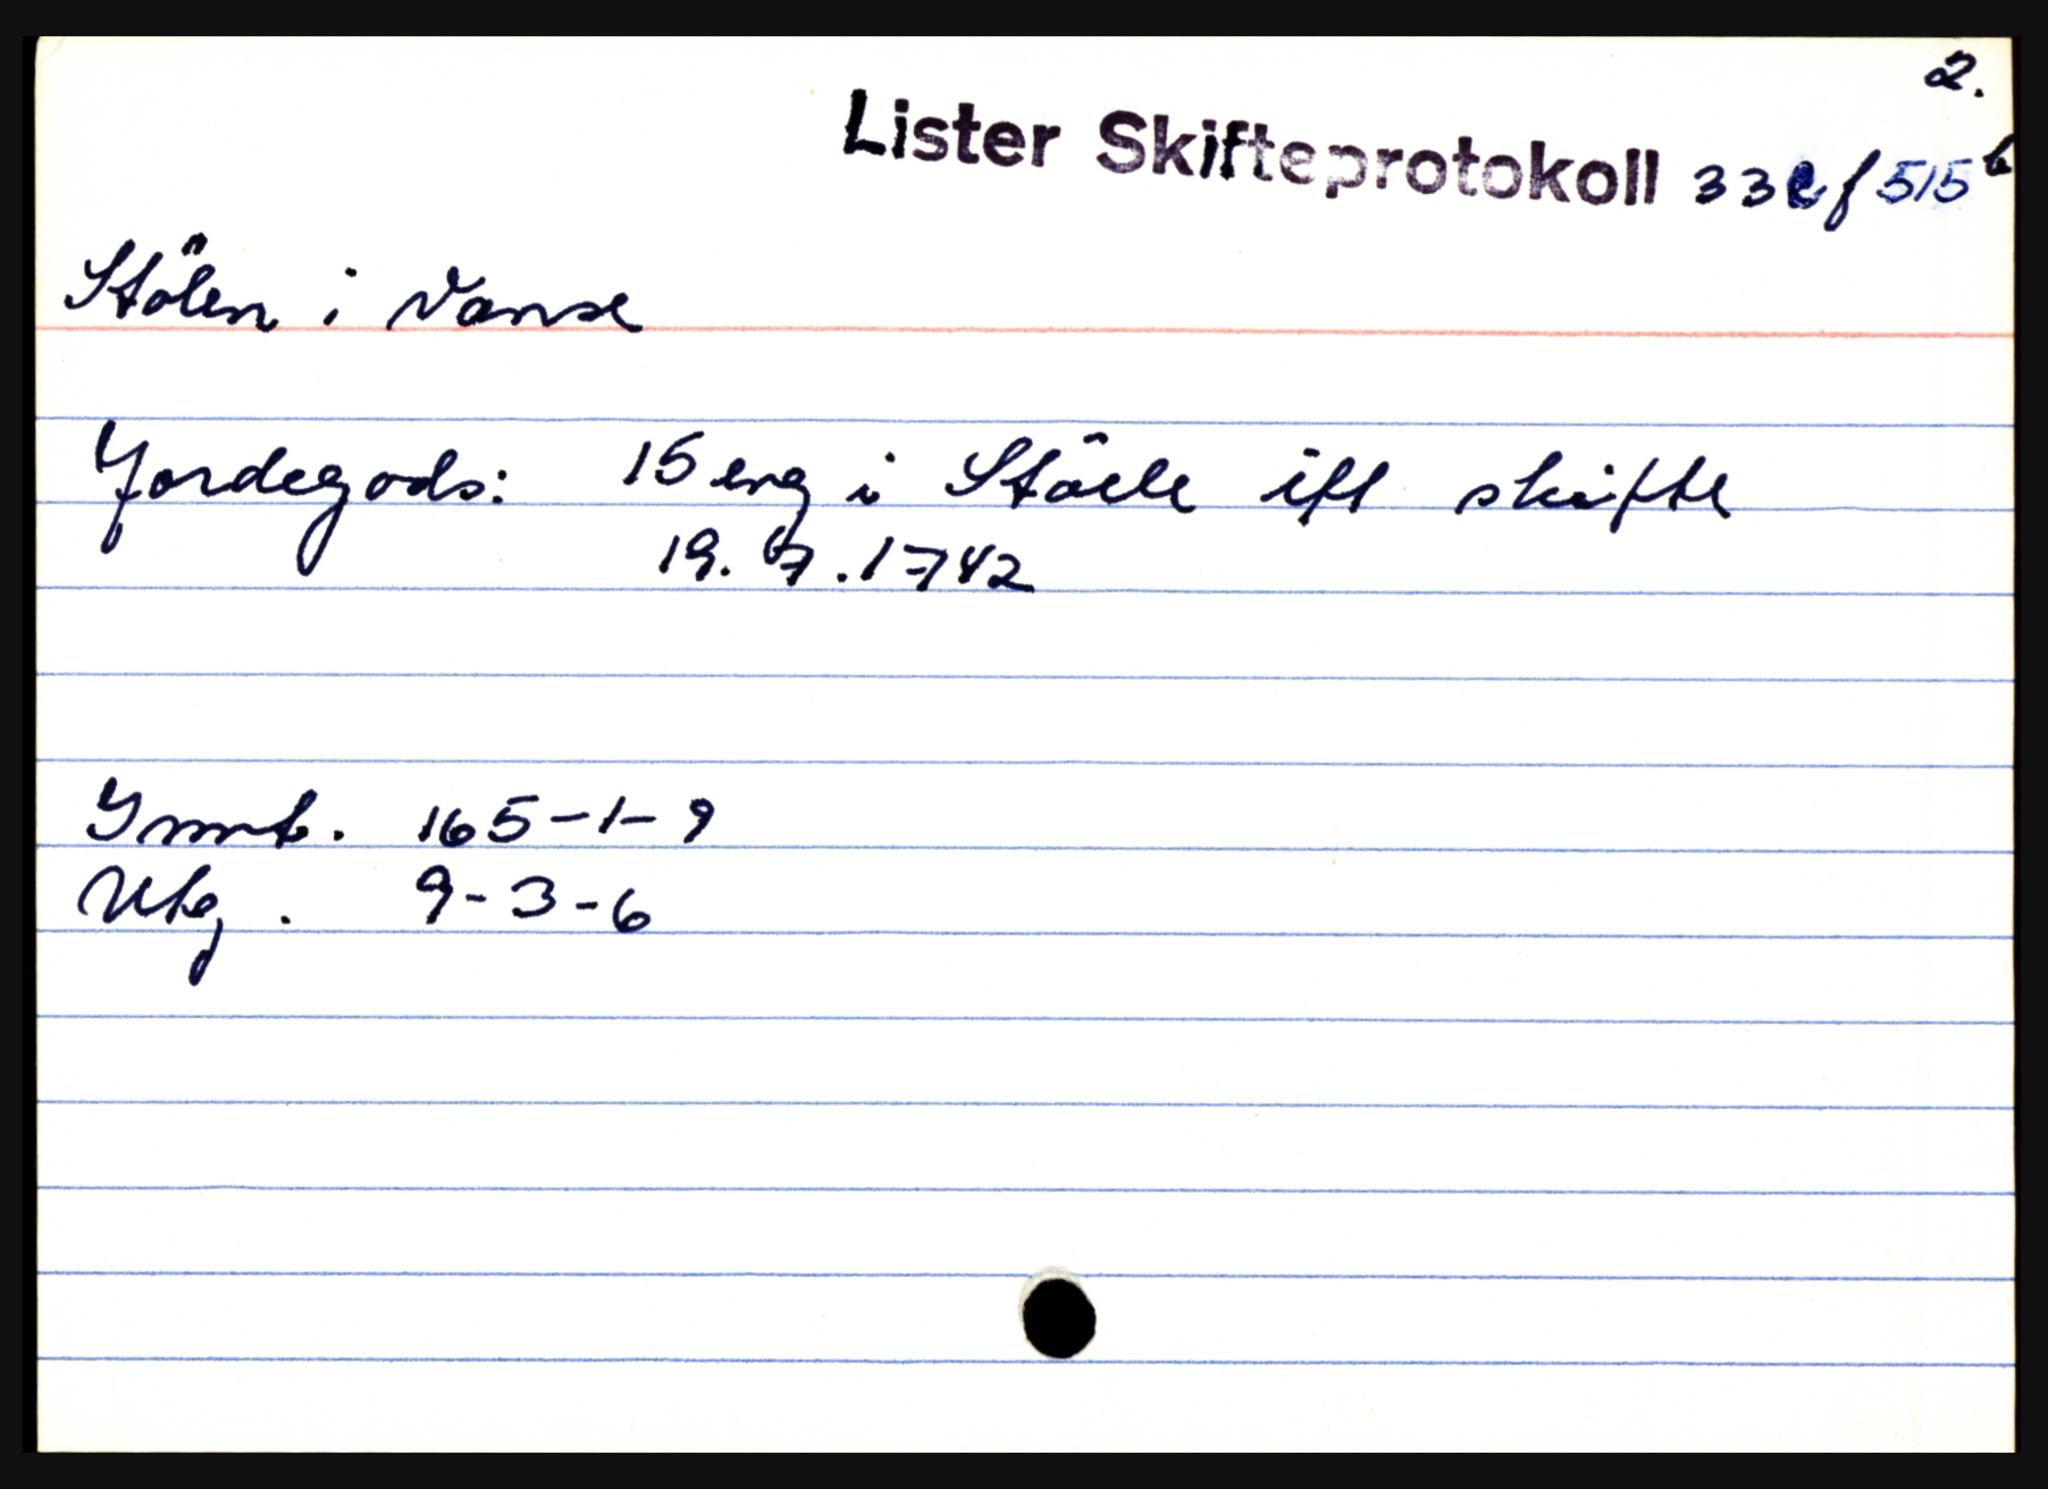 2.
Lister Skifteprotokoll 33 e f 515 b
Stölen i Vanse
Jordegods: 15 eng i Stöele ifl skifte
19. 7. 1742
Innt. 165-1-9
Utg. 9-3-6